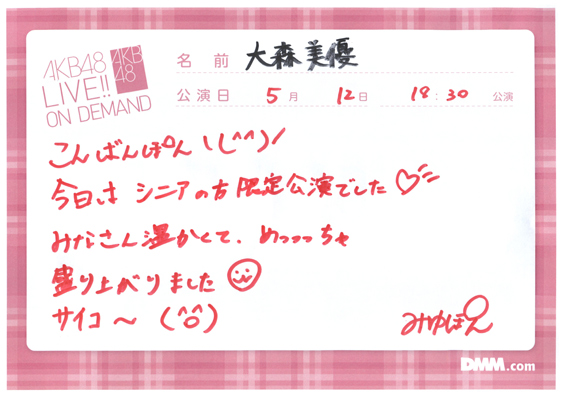 AKB48
LIVE!!
ON DEMAND
AKB
48
名 前 大森美優
公演日 5月 12日 18:30 公演
こんばんぽん\(^^)/
今日は シニアの方限定公演でした♡
みなさん温かくて、めっっっちゃ
盛り上がりました
サイコ〜 (^o^)
みゆぽん
DMM.com